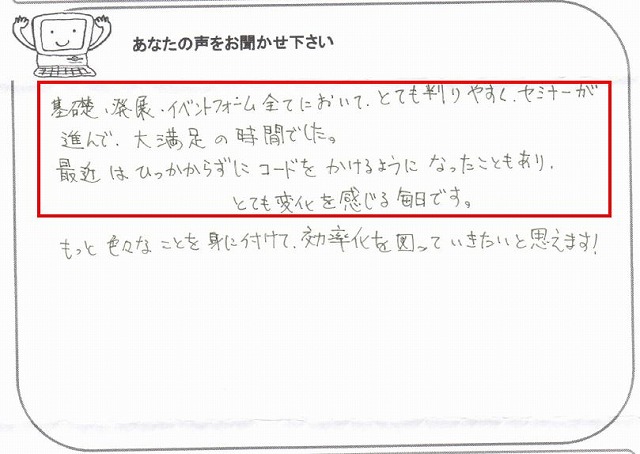 あなたの声をお聞かせ下さい
基礎、発展、イベントフォーム全てにおいて、とても判りやすく、セミナーが
進んで、大満足の時間でした。
最近はひっかからずにコードをかけるようになったこともあり、
とても変化を感じる毎日です。
もっと色々なことを身に付けて、効率化を図っていきたいと思えます!